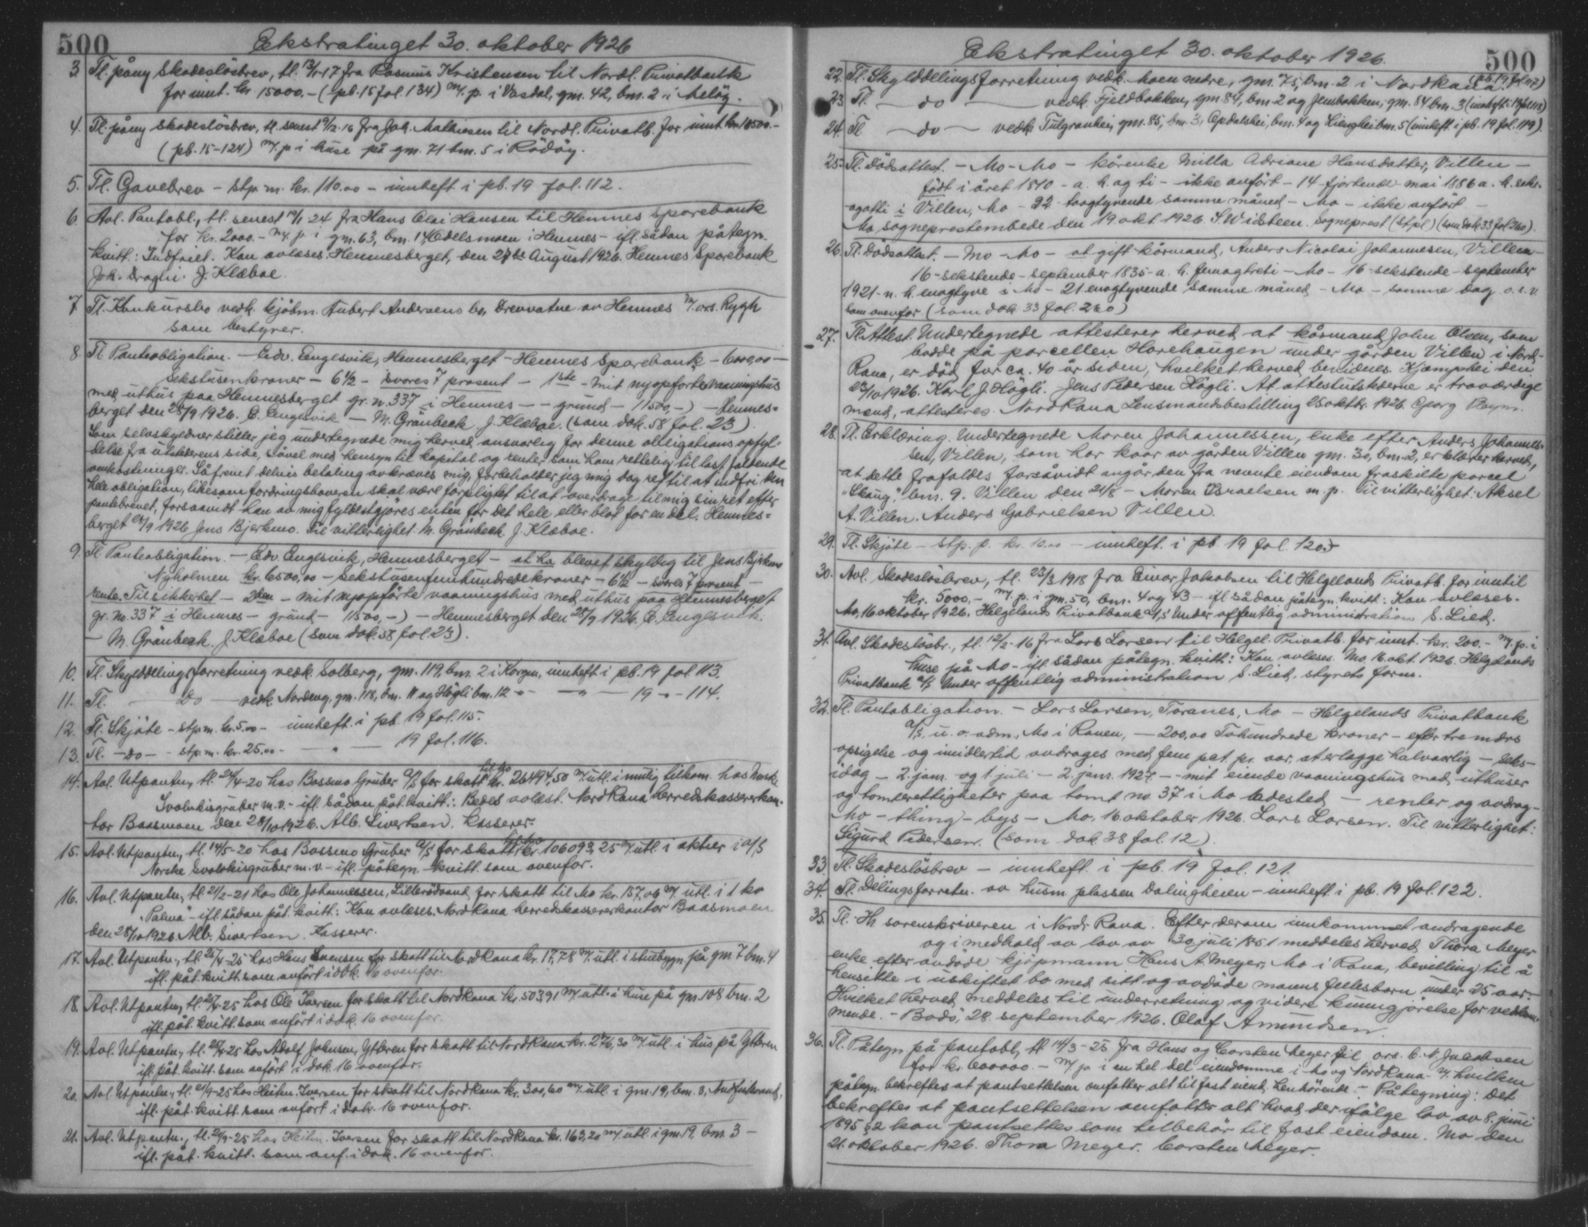 500
Ekstratinget 30. oktober 1926
3. Tl. påny skadeslösbrev, tl. 13/1-17 fra Rasmus Kristensen til Nordl. Privatbank
for innt. kr 15000.- (pb. 15 fol. 134) m/p. i Vasdal, gm. 42, bm. 2 i
4. Tl. påny skadeslösbrev, tl. senest fra Joh. Mathisen til Nordl. Privatb. for innt. kr. 10500.-
(pb. 15-124) m/p i huse på gm. 71 bm. 5 i Rödöy.
5. Tl. Gavebrev - stp. m. kr. 110.00 - innheft i pb. 19 fol. 112.
6. Avl. Pantobl., tl. senest 24 fra Hans Olai Hansen til Hemnes Sparebank
for kr. 2000.- m/p. i gm. 63, bm. i Hemnes - ifl. sådan påtegn.
kvitt: Indfriet. Kan avlæses Hemnesberget, den August 1926. Hemnes Sparebank
Joh. J. Klæboe
7. Tl. Konkursbo vedk. kjöbm. Hubert Andersens bo, Drevvatne av Hemnes m/ ors. Rygh
som bestyrer.
8. Tl. Panteobligation. - Edv. Englesvik, Hemnesberget - Hemnes Sparebank - 6000,00 -
sekstusen kroner - 6½ - svares 7 prosent - 1ste - mit nyopförte vaaningshus
med uthus paa Hemnesberget gr. n. 337 i Hemnes - - grund - 11500,-) - Hemnes-
berget den 28/9 1926. E. Englesvik - M. Grånbeck J. Klæboe. (som dok. 58 fol. 23).
Som selvskyldner stiller jeg undertegnede mig herved ansvarlig for denne obligations opfyl-
delse fra utstederens side, såvel med hensyn til kapital og rente, som ham rettelig til last faldende
omkostninger. Såfremt delvis betaling avkræves mig, forbeholder jeg mig dog ret til at indfri den
hele obligation, likesom fordringshaveren skal være forpligtet til at overdrage til mig sin ret efter
pantebrevet, forsaavidt han av mig fyldestgjöres enten for det hele eller blot for en del. Hemnes-
berget 1926 Jens Bjerkmo. Til vitterlighet M. Grånbeck J. Klæboe.
9. Tl. Panteobligation. - Edv. Englesvik, Hemnesberget - at ha blevet skyldig til Jens Bjerkmo
Nyholmen kr. 6500,00 - sekstusenfemhundredekroner - 6½ - svares 7 prosent -
rente. Til sikkerhet - 2den - mit nyopförte vaaningshus med uthus paa Hemnesberget
gr. no. 337 i Hemnes - grund - 11500,-) - Hemnesberget den 28/9 1926. E. Englesvik.
- M. Grånbeck. J. Klæboe (som dok. 58 fol 23).
10. Tl. Skylddelingsforretning vedk. Solberg, gm. 119, bm. 2 i Korgen, innheft i pb. 19 fol 113.
11. Tl. Do - vedk. Nordeng, gm. 118, bm. 11 og Högli bm. 12 - - 19 - 114.
12. Tl. Skjöte - stp m. kr. 5.00 - innheft. i pb 19 fol. 115.
13. Tl. - Do - stp. m. kr. 25.00 - 19 fol. 116.
14. Avl. Utpantn., tl. -20 hos Bossmo Gruber a/s for skatt kr. 26494,50 m/ utl i mulig tilkom. hos Norsk
Svovlkisgruber m. v. - ifl. sådan påt. kvitt: Bedes avlæst. Nord Rana herredskassererkon-
tor Baasmoen den 28/10 1926. Alb. Sivertsen. Kasserer.
15. Avl. Utpantn., tl. 14/5-20 hos Bossmo Gruber a/s for skatt kr. 106093,25 m/ utl. i aktier i a/s
Norske Svovlkisgruber m. v. - ifl. påtegn. kvitt som ovenfor.
16. Avl. Utpantn., tl. -21 hos Ole Johannessen, for skatt til Mo kr. 157,06 m/ utl. i 1 ko
"Palma" - ifl. sådan påt. kvitt: Kan avlæses. Nord Rana herredskassererkontor Baasmoen
den 28/10 1926 Alb. Sivertsen. Kasserer.
17. Avl. Utpantn., tl. -25 hos Hans Svensen for skatt til Nord Rana kr. 17,78 m/ utl. i stubygn. på gm 7 bm. 4
ifl. påt. kvitt som anfört i dok. 16 ovenfor.
18. Avl. Utpantn., tl. -25 hos Ole Iversen for skatt til Nord Rana kr. 503,91 m/ utl. i hus på gm. 108 bm. 2
ifl. påt. kvitt. som anfört i dok. 16 ovenfor.
19. Avl. Utpantn., tl. -25 hos Adolf Johnsen, Ytteren for skatt til Nord Rana kr. m/ utl. i hus på Ytteren
ifl. påt. kvitt. som anfört i dok. 16 ovenfor.
20. Avl. Utpantn., tl. -25 hos Iversen for skatt til Nord Rana kr. 300,60 m/ utl. i gm. 19, bm. 3,
ifl. påt. kvitt som anfört i dok. 16 ovenfor.
21. Avl. Utpantn., tl. -25 hos Iversen for skatt til Nord Rana kr. 163,20 m/ utl i gm 19, bm. 3 -
ifl. påt. kvitt. som anf. i dok. 16 ovenfor.
Ekstratinget 30. oktober 1926.
500
22. Tl. Skylddelingsforretning vedk. nedre, gm. 75, bm. 2 i Nordrana
23. Tl. - do - vedk. Fjeldbakken, gm 84, bm. 2 og Jensbakken, gm. 84 bm. 3
24. Tl. - do - vedk. gm. 85, bm. 3, bm. 4 og bm. 5 (innheft i pb. 19 fol. 119).
25. Tl. Dödsattest. - Mo - Mo - kårenke Milla Adriane Hansdatter, Villen -
födt i året 1840 - a. h. og ti - ikke anfört - 14 - fjortende mai 1886 a. h. seks-
ogotti i Villen, Mo - 22 - toogtyvende samme måned - Mo - ikke anfört -
Mo sogneprestembede den 19 okt 1926. sogneprest (stpl) (som dok 33 fol 260).
26. Tl. Dödsattest. - Mo - Mo - at gift kårmand, Anders Nicolai Johannesen, Villen -
16 - sekstende - september 1835 - a. h. femogtreti - Mo - 16 - sekstende - september
1921 - n. h. enogtyve i Mo - 21 enogtyvende samme måned - Mo - samme dag o.s.v.
som ovenfor (som dok 33 fol. 260)
27. Tl. Attest. Undertegnede attesterer herved at kårmand John Olsen, som
bodde på parcellen Harehaugen under gården Villen i Nord-
Rana, er död for ca. 40 år siden, hvilket herved bevidnes. den
1926. Karl J Högli. Jens Pedersen Högli. At attestutstederne er troværdige
mænd, attesteres. Nord Rana Lensmandsbestilling 25 oktbr. 1926 Georg
28. Tl. Erklæring. Undertegnede Maren Johannessen, enke efter Anders Johannes-
sen, Villen, som har kår av gården Villen gm. 30, bm. 2, erklærer herved,
at dette frafaldes forsåvidt angår den fra nevnte eiendom fraskilte parcel
"Skaug" bm. 9. Villen den - Maren Israelsen m. p. Til vitterlighet: Aksel
A. Villen. Anders Gabrielsen Villen.
29. Tl. Skjöte - stp. p. kr. 10.00 - innheft. i pb 19 fol. 120.
30. Avl. Skadeslösbrev, tl. 23/3 1918 fra Einar Jakobsen til Helgelands Privatb. for inntil
kr. 5000,- m/ p. i gm. 50, bm. 4 og 13 - ifl. sådan påtegn. kvitt: Kan avlæses.
Mo, 16 oktober 1926. Helgelands Privatbank a/s under offentlig administration S. Lied.
31. Avl. Skadeslösbr., tl. 12/2-16 fra Lars Larsen til Helgel. Privatb. for innt. kr. 200.- m/ p. i
huse på Mo - ifl. sådan påtegn. kvitt: Kan avlæses. Mo 16 okt. 1926. Helgelands
Privatbank a/s under offentlig administration S. Lied, styrets form.
32. Tl. Pantobligation. - Lars Larsen, Toranes, Mo - Helgelands Privatbank
a/s, u. o. adm., Mo i Ranen, - 200,00 Tohundrede kroner - efter tremdrs
opsigelse og imidlertid avdrages med fem pct. pr. aar, aterlagge halvaarlig - seks-
idag - 2. jan. og 1 juli - 2. jan. 1927. - mit eiende vaaningshus med uthuser
og tomterettigheter paa tomt no 37 i Mo ladested - renter og avdrag -
Mo - thing - bys - Mo, 16 oktober 1926 Lars Larsen. Til vitterlighet:
Sigurd Pedersen. (som dok. 33 fol. 12).
33. Tl. Skadeslösbrev - innheft i pb. 19 fol. 121.
34. Tl. Delingsforretn. av husm. plassen Dalingheien - innheft i pb. 19 fol. 122.
35. Tl. Hr. sorenskriveren i Nordr. Rana. Efter derom innkommet andragende
og i medhold av lov av 30. juli 1851 meddeles herved Thora Meyer
enke efter avdöde kjöpmann Hans A. Meyer, Mo i Rana, bevilling til å
hensitte i uskiftet bo med sitt og avdöde manns fellesbarn under 25 aar.
Hvilket herved meddeles til underretning og videre kunngjörelse for vedkom-
mende. - Bodö, 28. september 1926. Olaf Amundsen.
36. Tl. Påtegn. på pantobl., tl. 14/3-25 fra Hans og Carsten Meyer til ors. C. N. Jacobsen
for kr. 600000.- m/ p. i en hel del eiendomme i Mo og Nord Rana - ifl. hvilken
påtegn. bekreftes at pantsettelsen omfatter alt til fast eiend. henhörende. - Påtegning: Det
bekreftes at pantsettelsen omfatter alt hvad der ifölge lov av 8. juni
1895 § 2 kan pantsettes som tilbehör til fast eiendom. Mo den
21. oktober 1926. Thora Meyer. Carsten Meyer.